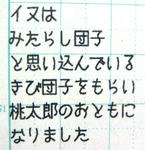 イヌは
みたらし団子
と思い込んでいる
きび団子をもらい
桃太郎のおともに
なりました